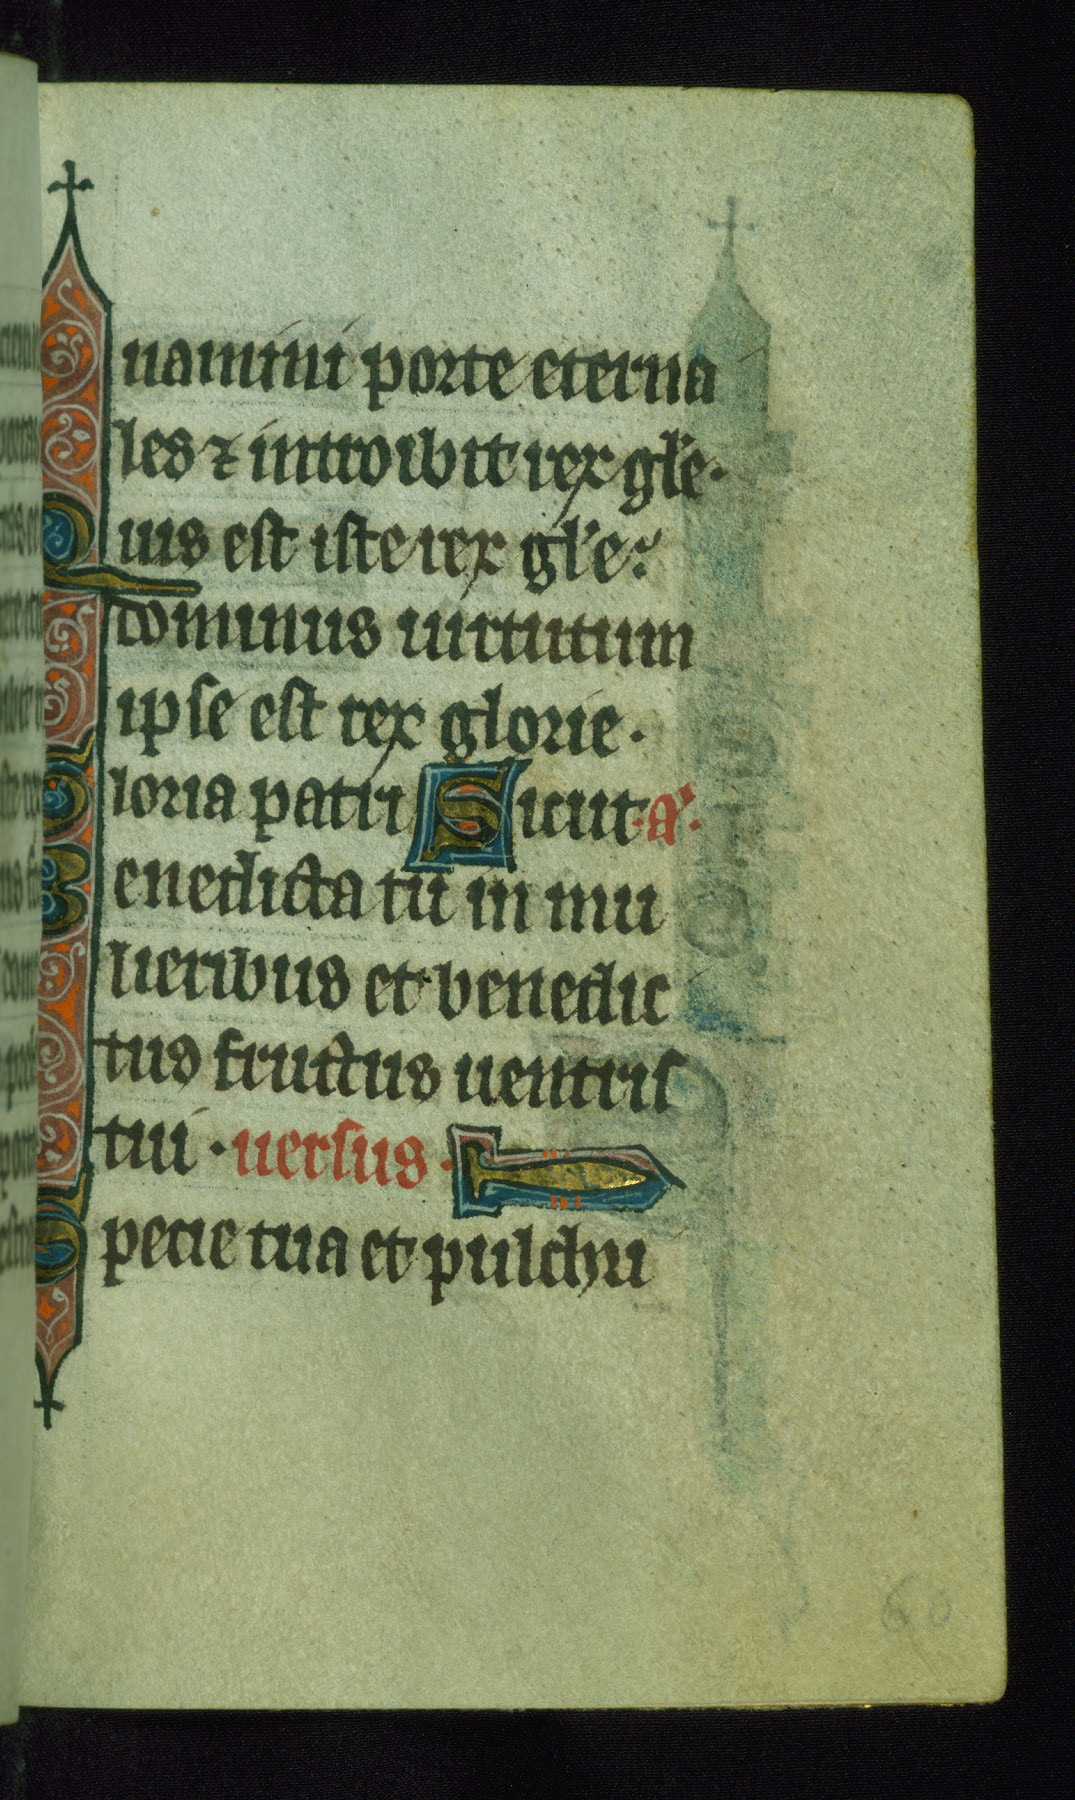 uamini porte eterna
les ⁊ introibit rex gl'e·
Quis est iste rex gl'e?
dominus uirtutum
ipse est rex glorie·
Gloria patri Sicut·a͞·
Benedicta tu in mu
lieribus et benedic
tus fructus uentris
tui · uersus ·
Specie tua et pulchri
60